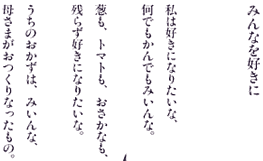 みんなを好きに
私は好きになりたいな、
何でもかんでもみいんな。
葱も、トマトも、おさかなも、
残らず好きになりたいな。
うちのおかずは、みいんな、
母さまがおつくりなったもの。